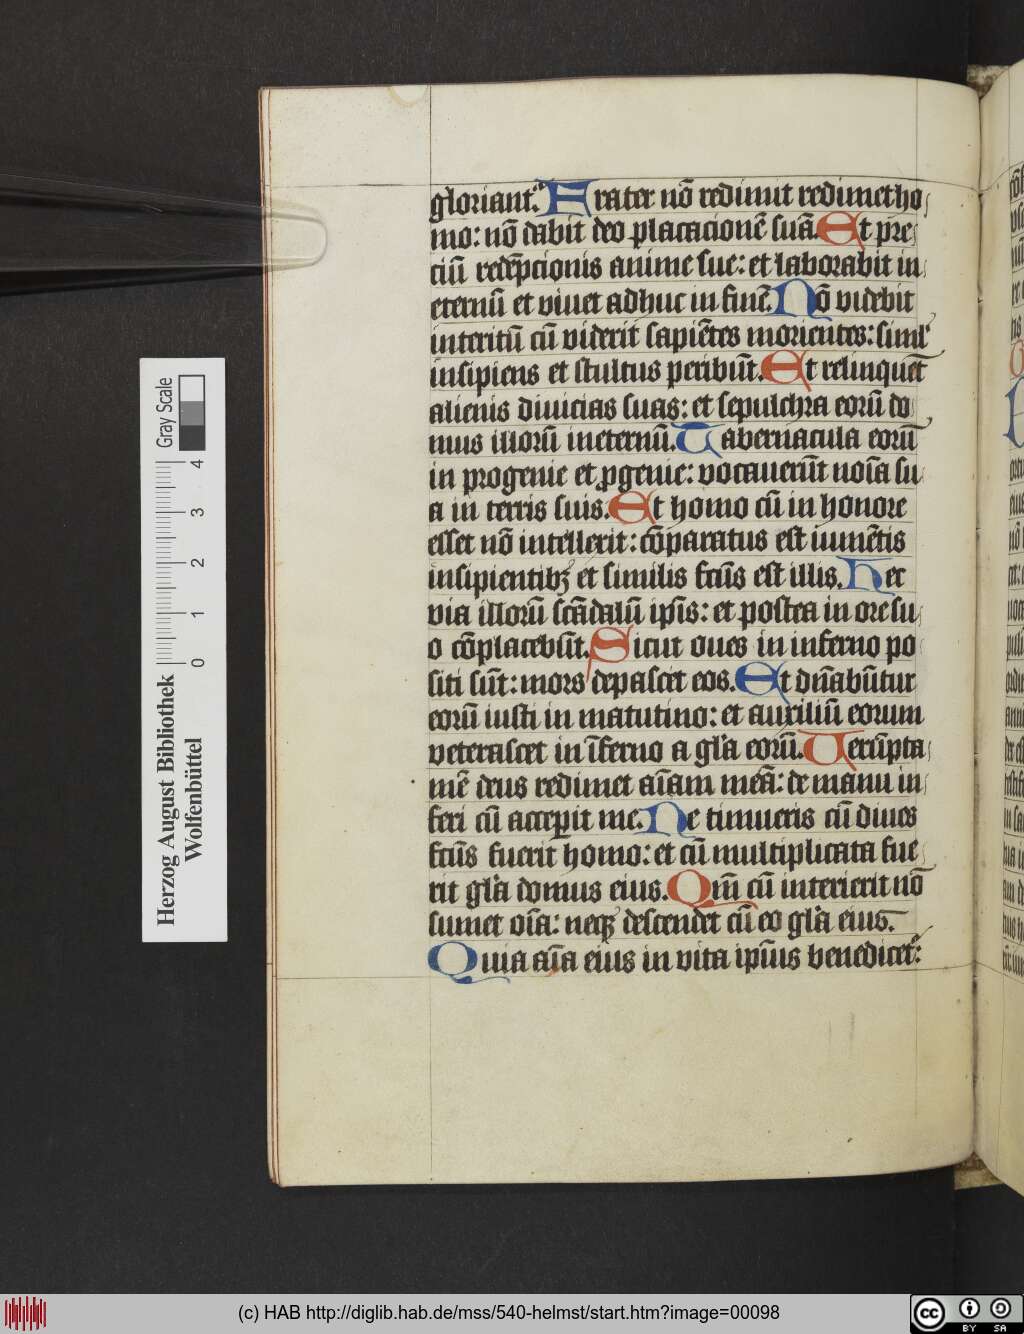 gloriant᷑. Frater nō redimit redimet ho
mo: nō dabit deo placacionē suā. Et pre
ciū redēpcionis anime sue: et laborabit in
eternū et viuet adhuc in finē. Nō videbit
interitū cū viderit sapiētes morientes: siml'
insipiens et stultus peribūt. Et relinquēt
alienis diuicias suas: et sepulchra eorū do
mus illorū in eternū. Tabernacula eorū
in progenie et ꝓgenie: vocauerūt noīa su
a in terris suis. Et homo cū in honore
esset nō intellexit: cōparatus est iumētis
insipientibꝫ et similis fcūs est illis. Hec
via illorū scādalū ipīs: et postea in ore su
o cōplacebūt. Sicut oues in inferno po
siti sūt: mors depascet eos. Et dn̄abūtur
eorū iusti in matutino: et auxiliū eorum
veterascet in īferno a gl'a eorū. Uerūpta
mē deus redimet aīam meā: de manu in
feri cū acceꝑit me. Ne timueris cū diues
fcūs fuerit homo: et cū multiplicata fue
rit gl'a domus eius. Qm̄ cū interierit nō
sumet oīa: neqꝫ descendet cū eo gl'a eius.
Quia aīa eius in vita ipīus benedicet᷑:
Herzog August Bibliothek
Wolfenbüttel
0 1 2 3 4
Gray Scale
(c) HAB http://diglib.hab.de/mss/540-helmst/start.htm?image=00098
cc BY SA